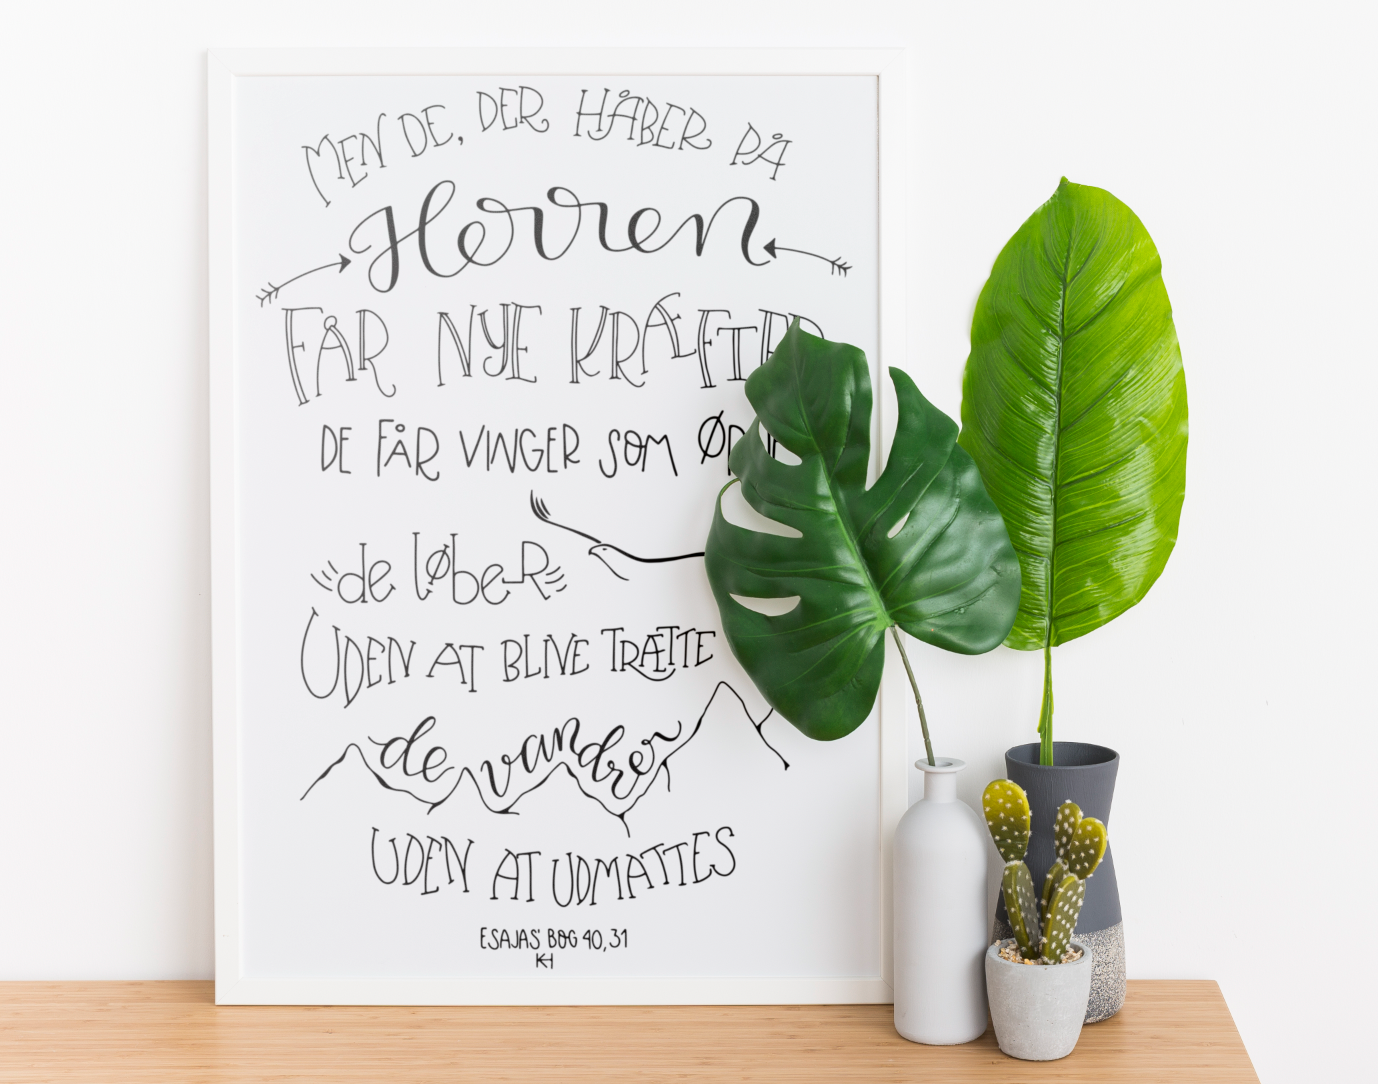 MEN DE, DER HÅBER PÅ
Herren
FÅR NYE KRÆFTER
DE FÅR VINGER SOM
de løber
UDEN AT BLIVE TRÆTTE
de vandrer
UDEN AT UDMATTES
ESAJAS' BOG 40,31
KH